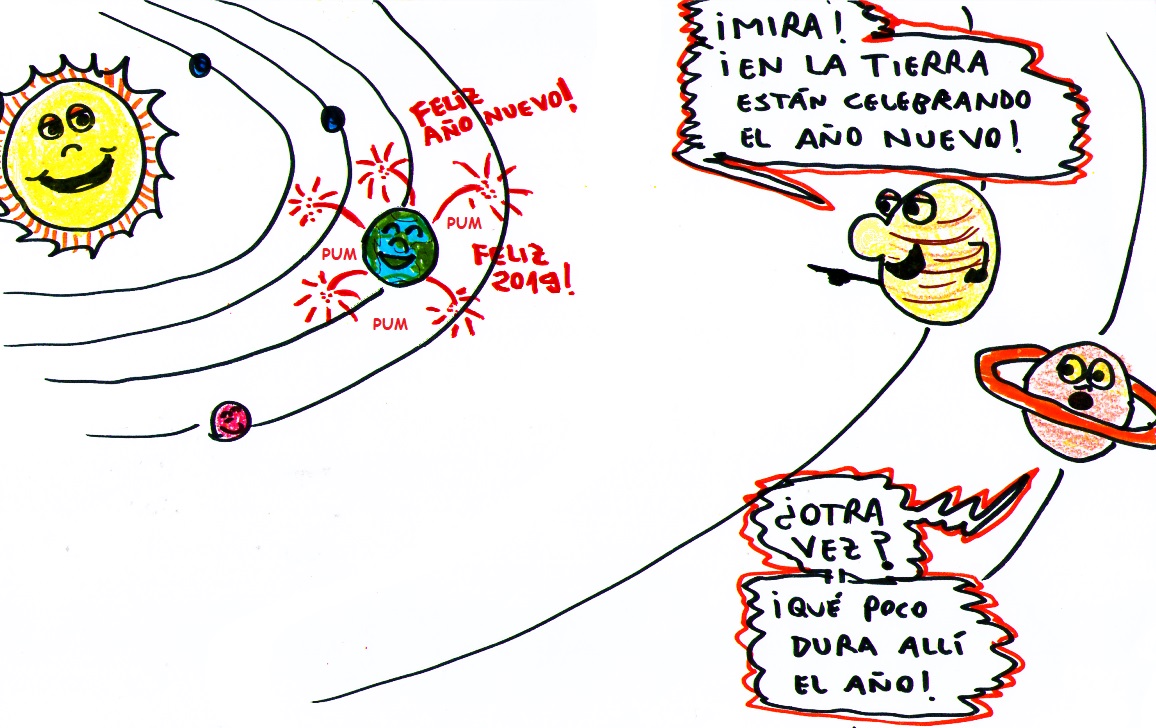 ¡MIRA!
¡EN LA TIERRA
ESTÁN CELEBRANDO
EL AÑO NUEVO!
FELIZ
AÑO NUEVO!
PUM
PUM
FELIZ
2019!
PUM
¿OTRA
VEZ?
¡QUÉ POCO
DURA ALLÍ
EL AÑO!